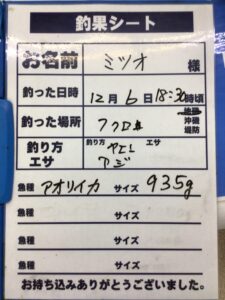 釣果シート
お名前 ミツオ 様
釣った日時 12月6日18:30時頃
釣った場所 フクロ 沖磯 堤防
釣り方 エサ 釣り方 ヤエン エサ アジ
魚種 アオリイカ サイズ 935g
魚種 サイズ
魚種 サイズ
魚種 サイズ
お持ち込みありがとうございました。